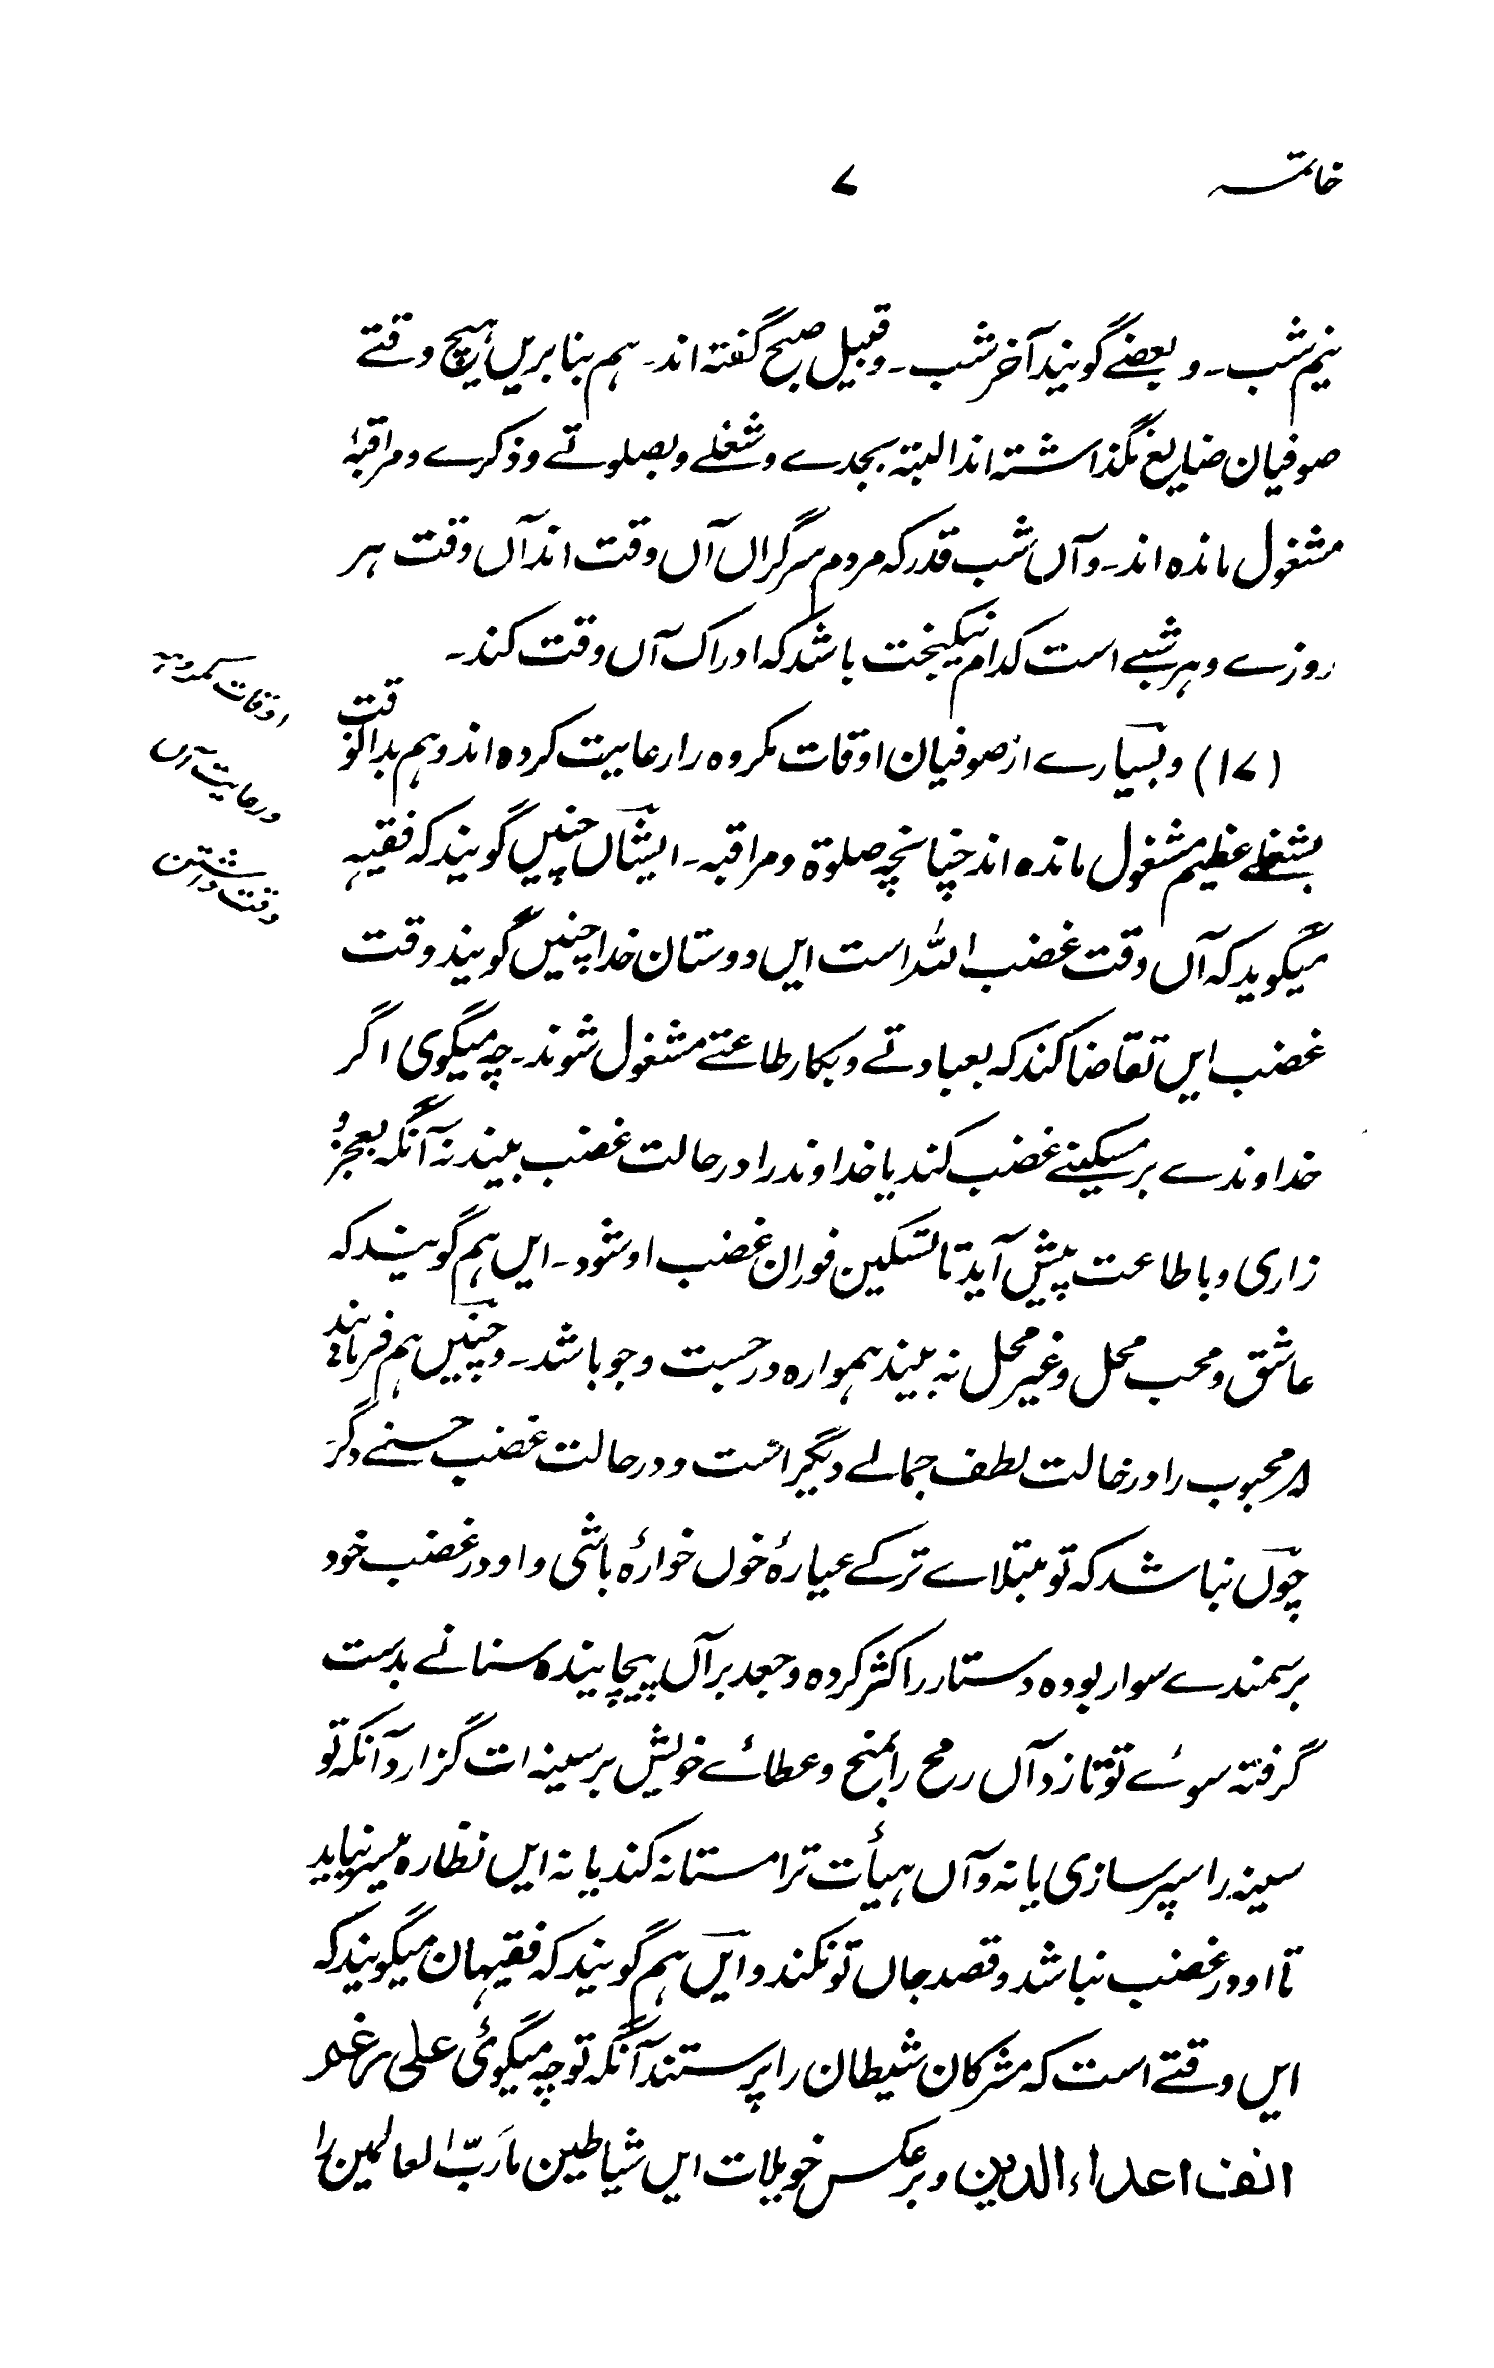 خاتمہ
۷
نیم شب۔ و بعضے گویند آخر شب۔ و قبیل صبح گفتہ اند۔ ہم بنا بریں ہیچ وقتے
صوفیان ضایع نگذاشتہ اند البتہ بجدے و شغلے و بصلوتے و ذکرے و مراقبۂ
مشغول ماندہ اند۔ و آں شب قدر کہ مردم سرگراں آں وقت اند آں وقت ہر
روزے و ہر شبے است کدام نیکبخت باشد کہ ادراک آں وقت کند۔
(۱۷) و بسیارے از صوفیان اوقات مکروہ را رعایت کردہ اند و ہم بداں وقت
اوقات مکروہہ
و رعایت آں
وقت داشتن
بشغلے عظیم مشغول ماندہ اند چنانچہ صلوٰۃ و مراقبہ۔ ایشاں چنیں گویند کہ فقیہ
میگوید کہ آں وقت غضب اللہ است ایں دوستان خدا چنیں گویند وقت
غضب ایں تقاضا کند کہ بعبادتے و بکار طاعتے مشغول شوند۔ چہ میگوی اگر
خداوندے بر مسکینے غضب کند یا خداوند را در حالت غضب بیند نہ آنکہ بعجز و
زاری و با طاعت پیش آید تا تسکین فوران غضب او شود۔ ایں ہم گویند کہ
عاشق و محب محل و غیر محل نہ بیند ہموارہ در جست و جو باشد۔ و چنیں ہم فرمایند
محبوب را در حالت لطف جمالے دیگر است و در حالت غضب حسنے دگر
چوں نباشد کہ تو مبتلاے ترکے عیارۂ خوں خوارۂ باشی و او در غضب خود
بر سمندے سوار بودہ دستار را کثر کردہ و جعد بر آں پیچانیدہ سنانے بدست
گرفتہ سوئے تو تازد آں رمح را بمنح و عطائے خویش بر سینہ ات گزارد آنکہ تو
سینہ را سپر سازی یا نہ و آں ہیأت ترا مستانہ کند یا نہ ایں نظارہ میسر نیاید
تا او در غضب نباشد و قصد جاں تو نکند و ایں ہم گویند کہ فقیہان میگویند کہ
ایں وقتے است کہ مشرکان شیطان را پرستند آنکہ تو چہ میگوئی علی رغم
انف اعداء الدین و بر عکس خویلات ایں شیاطین ما رَبّ العالمین را